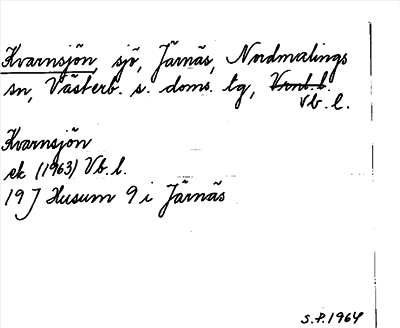 Kvarnsjön, sjö, Järnäs, Nordmalings
sn, Västerb. s. doms. tg, Vrnl. l.
Vb. l.
Kvarnsjön
ek (1963) Vb. l.
19 J Husum 9 i Järnäs
S.P. 1964